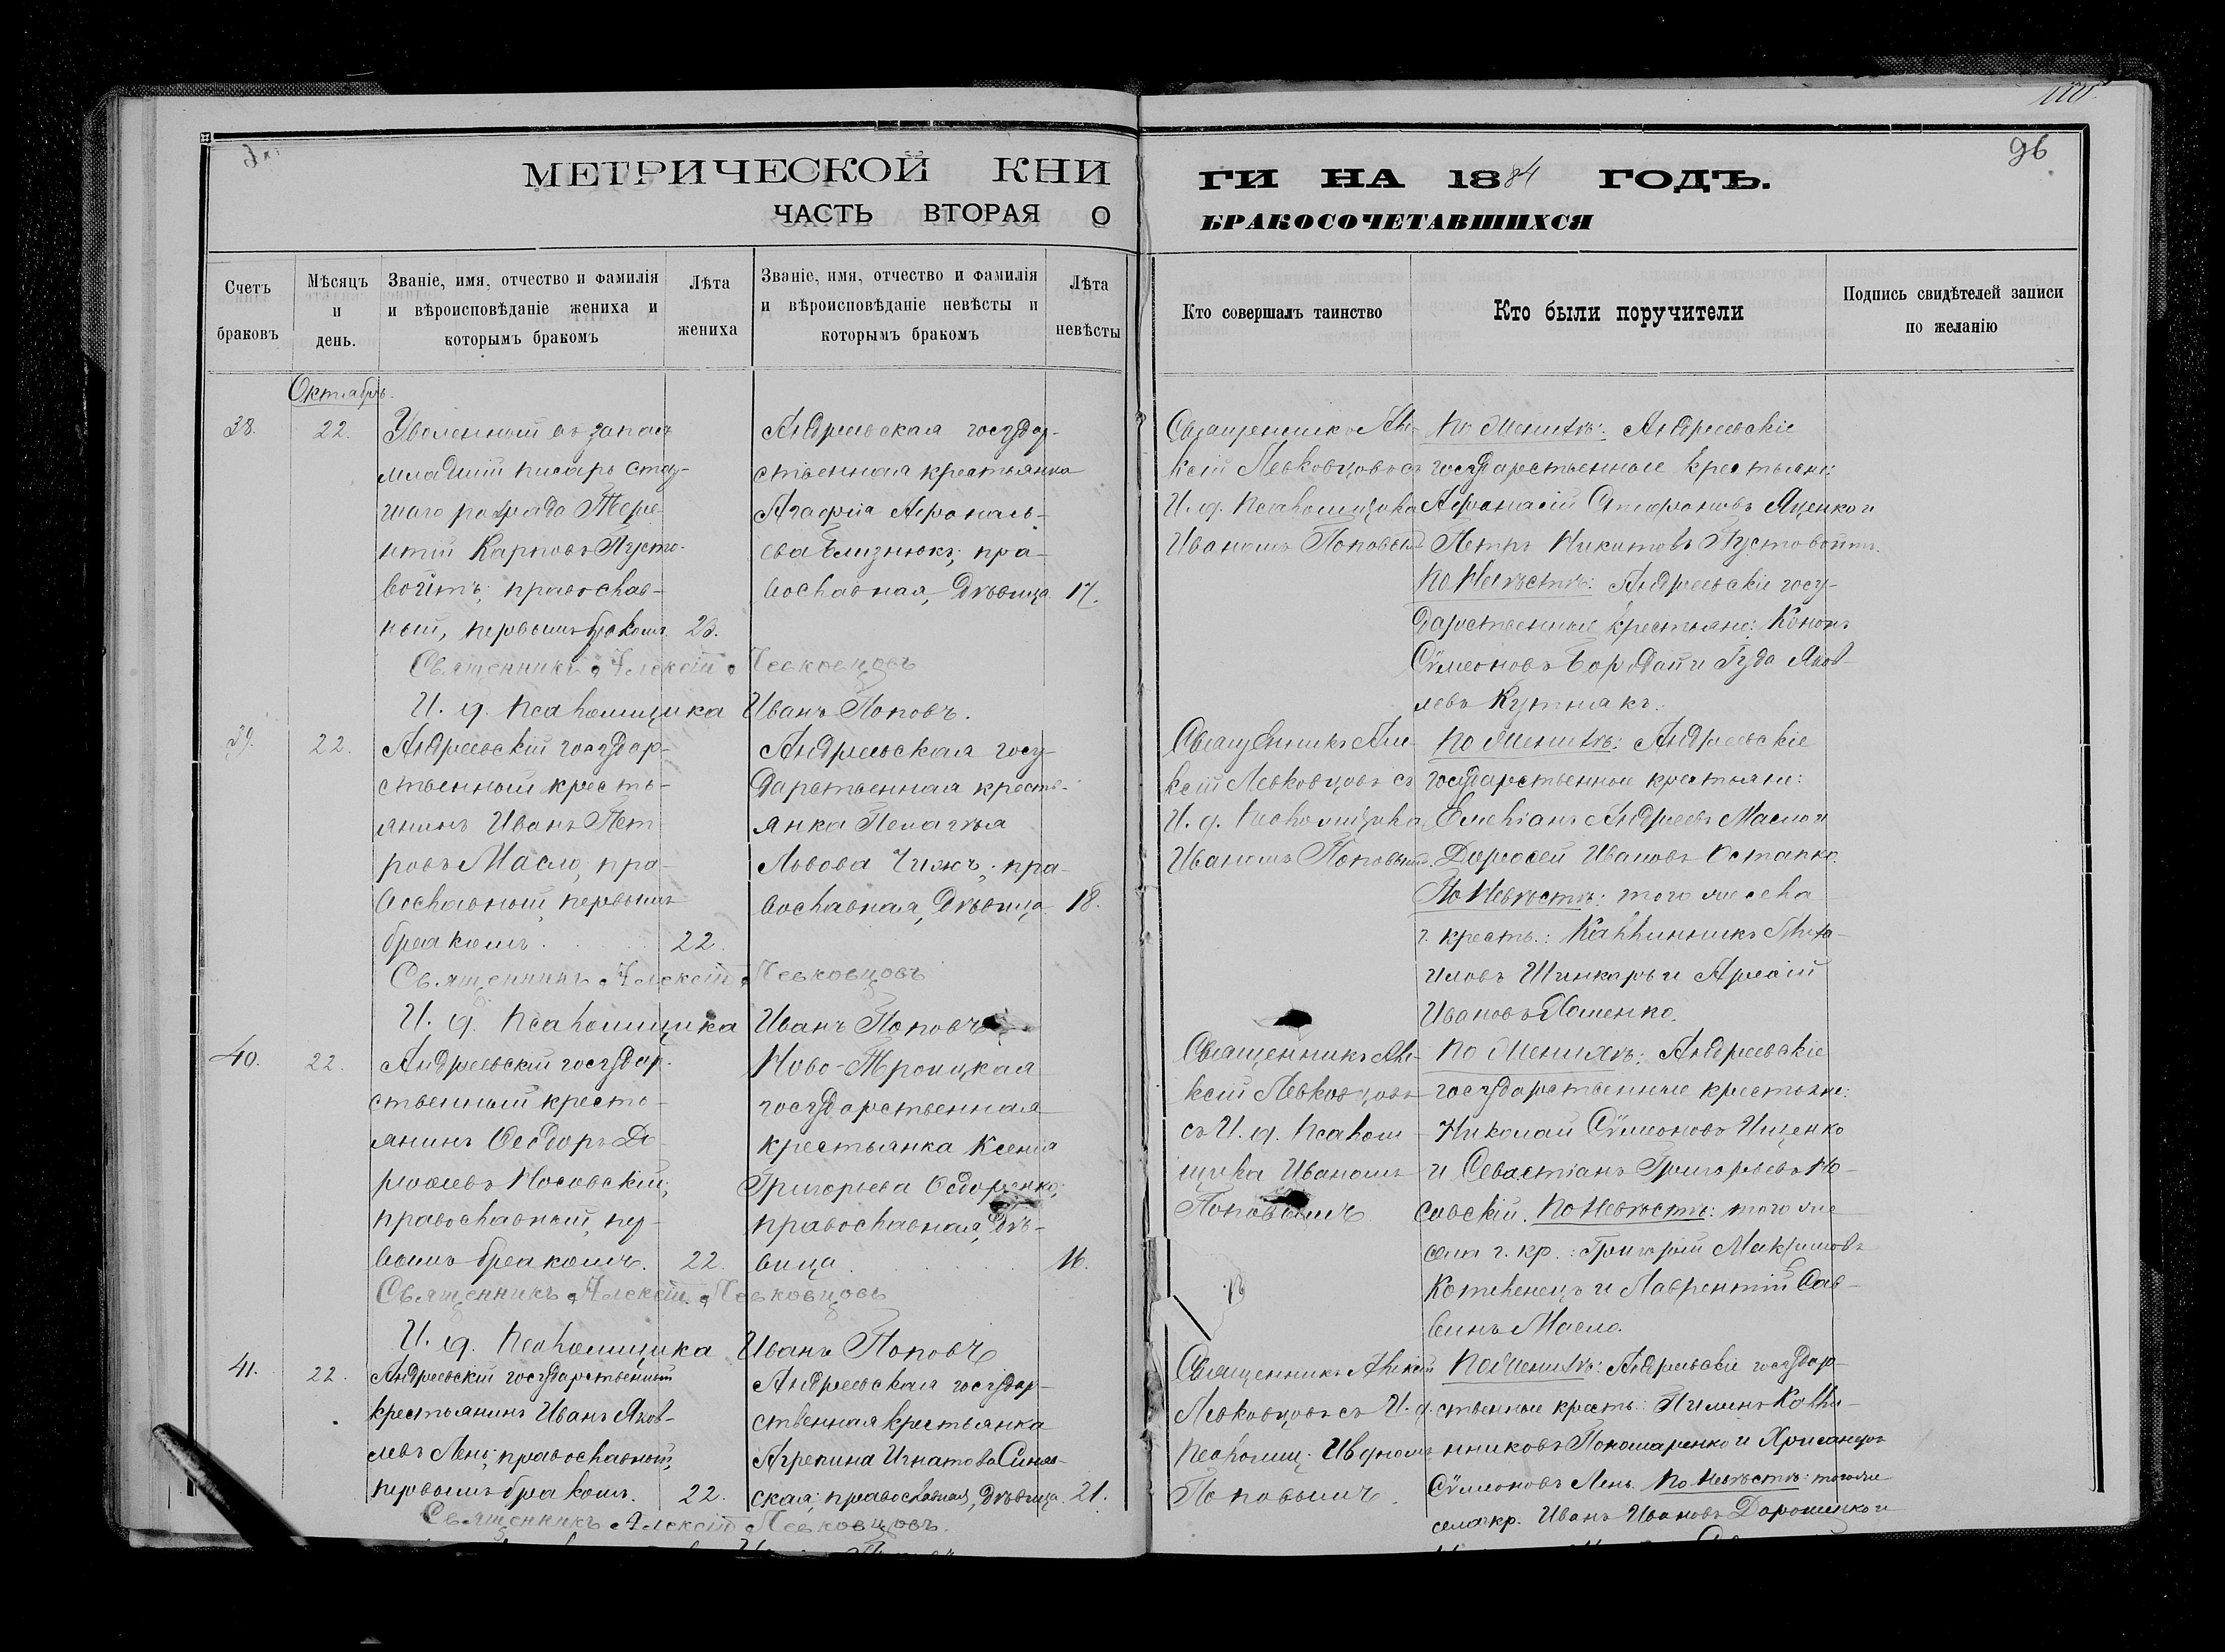 96
МЕТРИЧЕСКОЙ КНИ
ГИ НА 1884 ГОДЪ.
ЧАСТЬ ВТОРАЯ О
БРАКОСОЧЕТАВШИХСЯ
Счетъ браковъ
Мѣсяцъ и день.
Званіе, имя, отчество и фамилія
и вѣроисповѣданіе жениха и
которымъ бракомъ
Лѣта жениха
Званіе, имя, отчество и фамилія
и вѣроисповѣданіе невѣсты и
которымъ бракомъ
Лѣта невѣсты
Кто совершалъ таинство
Кто были поручители
Подпись свидѣтелей записи
по желанію
Октябрь.
38.
22.
Уволенный въ запасъ
младшій писарь стар-
шаго разряда Тере-
нтій Карповъ Пусто-
войтъ; православ-
ный, первымъ бракомъ
23.
Андреевская государ-
ственная крестьянка
Агафія Афонась-
ева Близнюкъ; пра-
вославная, дѣвица
17.
Священникъ Але-
ксій Левковцовъ съ
И. д. псаломщика
Иваномъ Поповым
По женихѣ: Андреевскіе
государственные крестьяне:
Афанасій Яценко и
Петръ Никитовъ Пустовойтъ.
По невѣстѣ: Андреевскіе госу-
дарственные крестьяне: Кононъ
Сѵмеоновъ Бородай и Гуда Яков-
левъ Кутнякъ.
Священникъ Алексій Левковцовъ
И. д. Псаломщика Иванъ Поповъ.
39.
22.
Андреевскій государ-
ственный кресть-
янинъ Иванъ Пет
ровъ Масло, пра-
вославный, первымъ
бракомъ.
22.
Андреевская госу-
дарственная кресть-
янка Пелагѣя
Львова Чижъ; пра-
вославная, дѣвица
18.
Священникъ Але-
ксій Левковцовъ съ
И. д. псаломщика
Иваномъ Поповым.
По женихѣ: Андреевскіе
государственные крестьяне:
Емеліанъ Андреевъ Масло и
Дорофей Ивановъ Остапко.
По невѣстѣ: того же села
г. кресть.: Каллинникъ Миха-
иловъ Шинкарь и
Ивановъ
Священникъ Алексій Левковцовъ
И. д. Псаломщика Иванъ Поповъ
40.
22.
Андреевскій государ-
ственный кресть-
янинъ Ѳеодоръ До-
роѳеевъ Носовскій;
православный, пер-
вымъ бракомъ.
22.
Ново-Троицкая
государственная
крестьянка Ксенія
Григорьева Ѳедоренко;
православная, дѣ-
вица
16.
Священникъ Але-
ксій Левковцовъ
съ И. д. псалом-
щика Иваномъ
Поповымъ
По женихѣ: Андреевскіе
государственные крестьяне:
Николай Сѵмеоновъ Ищенко
и Севастіанъ Григорьевъ Но-
совскій. По невѣстѣ: того же
села г. кр.: Григорій Максимовъ
Котеленецъ и Лаврентій Сав-
винъ Масло.
Священникъ Алексій Левковцовъ
И. д. Псаломщика Иванъ Поповъ
41.
22.
Андреевскій государственный
крестьянинъ Иванъ Яков-
левъ Лень; православный,
первымъ бракомъ.
22.
Андреевская государ-
ственная крестьянка
Агрепина Игнатова Синяв-
ская; православная, дѣвица.
21.
Священникъ Алексій
Левковцовъ съ И. д.
псаломщ. Иваномъ
Поповымъ.
По женихѣ: Андреевскіе государ-
ственные кресть.: Пименъ Калли-
нниковъ Пономаренко и Хрисанфъ
Сѵмеоновъ Лень. По невѣстѣ: того же
села г. кр. Иванъ Ивановъ Дорошенко и
Священникъ Алексій Левковцовъ.